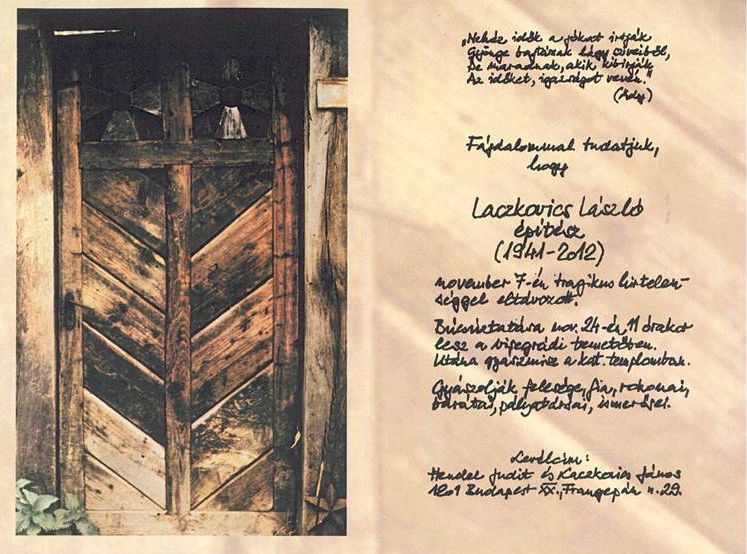 „Nehéz idők a jókat irtják
Gyönge bajtársak lágy szíveiből,
De maradnak, akik kibírják
Az időket, igazságot vevén."
(Ady)
Fájdalommal tudatjuk,
hogy
Laczkovics László
építész
(1941-2012)
november 7-én tragikus hirtelen-
séggel eltávozott.
Búcsúztatása nov. 24-én, 11 órakor
lesz a visegrádi temetőben.
Utána gyászmise a kat. templomban.
Gyászolják felesége, fia, rokonai,
barátai, pályatársai, ismerősei.
Levélcím:
Hendel Judit és Laczkovics János
1201 Budapest XX., Frangepán u. 29.